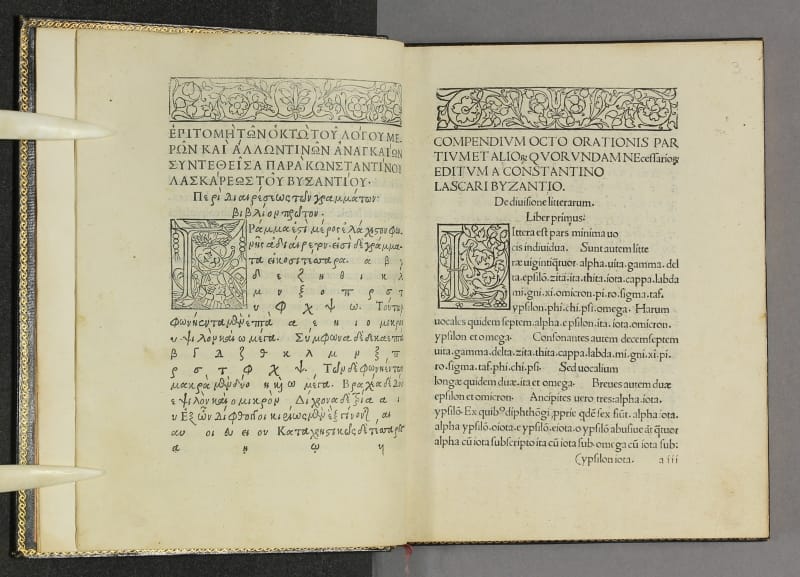 ΕΠΙΤΟΜΗ ΤΩΝ ΟΚΤΩ ΤΟΥ ΛΟΓΟΥ ΜΕ
ΡΩΝ ΚΑΙ ΑΛΛΩΝ ΤΙΝΩΝ ΑΝΑΓΚΑΙΩΝ
ΣΥΝΤΕΘΕΙΣΑ ΠΑΡΑ ΚΩΝΣΤΑΝΤΙΝΟΥ
ΛΑΣΚΑΡΕΩΣ ΤΟΥ ΒΥΖΑΝΤΙΟΥ·
Περὶ διαιρέσεως τῶν γραμμάτων·
βιβλίον πρῶτον.
ΓΡάμμα ἐστὶ μέρος ἐλάχιστον φω
νῆς ἀδιαίρετον. εἰσὶ δὲ γράμμα
τα εἰκοσιτέσσαρα. α β γ
δ ε ζ η θ ι κ λ
μ ν ξ ο π ρ σ τ
υ φ χ ψ ω. Τούτων
φωνήεντα μὲν ἑπτὰ α ε η ι ο μικρὸν
υ ψιλὸν καὶ ω μέγα. Σύμφωνα δὲ δεκαεπτὰ
β γ δ ζ θ κ λ μ ν ξ π
ρ σ τ φ χ ψ. Τῶν δὲ φωνηέντων
μακρὰ μὲν δύο η καὶ ω μέγα. Βραχέα δὲ δύο
ε ψιλὸν καὶ ο μικρὸν Δίχρονα δὲ τρία α ι
υ Ἐξ ὧν Δίφθογγοι κυρίως μὲν ἓξ γίνονται αι
αυ οι ει ευ ου Καταχρηστικῶς δὲ τέσσαρες
ᾳ ῃ ῳ
3
COMPENDIVM OCTO ORATIONIS PAR
TIVM ET ALIOꝝ QVORVNDAM NEcessarioꝝ
EDITVM A CONSTANTINO
LASCARI BYZANTIO.
De diuisione litterarum.
Liber primus:
LIttera est pars minima uo
cis indiuidua. Sunt autem litte
ræ uigintiq̃tuor. alpha. uita. gamma. del
ta. epsilõ. zita. ita. thita. iota. cappa. labda
mi. gni. xi. omicron. pi. ro. sigma. taf.
ypsilon. phi. chi. psi. omega. Harum
uocales quidem septem. alpha. epsilon. ita. iota. omicron.
ypsilon et omega. Consonantes autem decemseptem
uita. gamma. delta. zita. thita. cappa. labda. mi. gni. xi. pi.
ro. sigma. taf. phi. chi. psi. Sed uocalium
longæ quidem duæ. ita et omega. Breues autem duæ
epsilon et omicron. Ancipites uero tres: alpha. iota.
ypsilõ. Ex quibꝰ diphthõgi ,pprie qdẽ sex fiũt. alpha iota.
alpha ypsilõ. o iota. e ypsilõ. e iota. o ypsilõ abusiue aũt q̃tuor
alpha cũ iota subscripto ita cũ iota sub. omega cũ iota sub:
(ypsilon iota. a iii